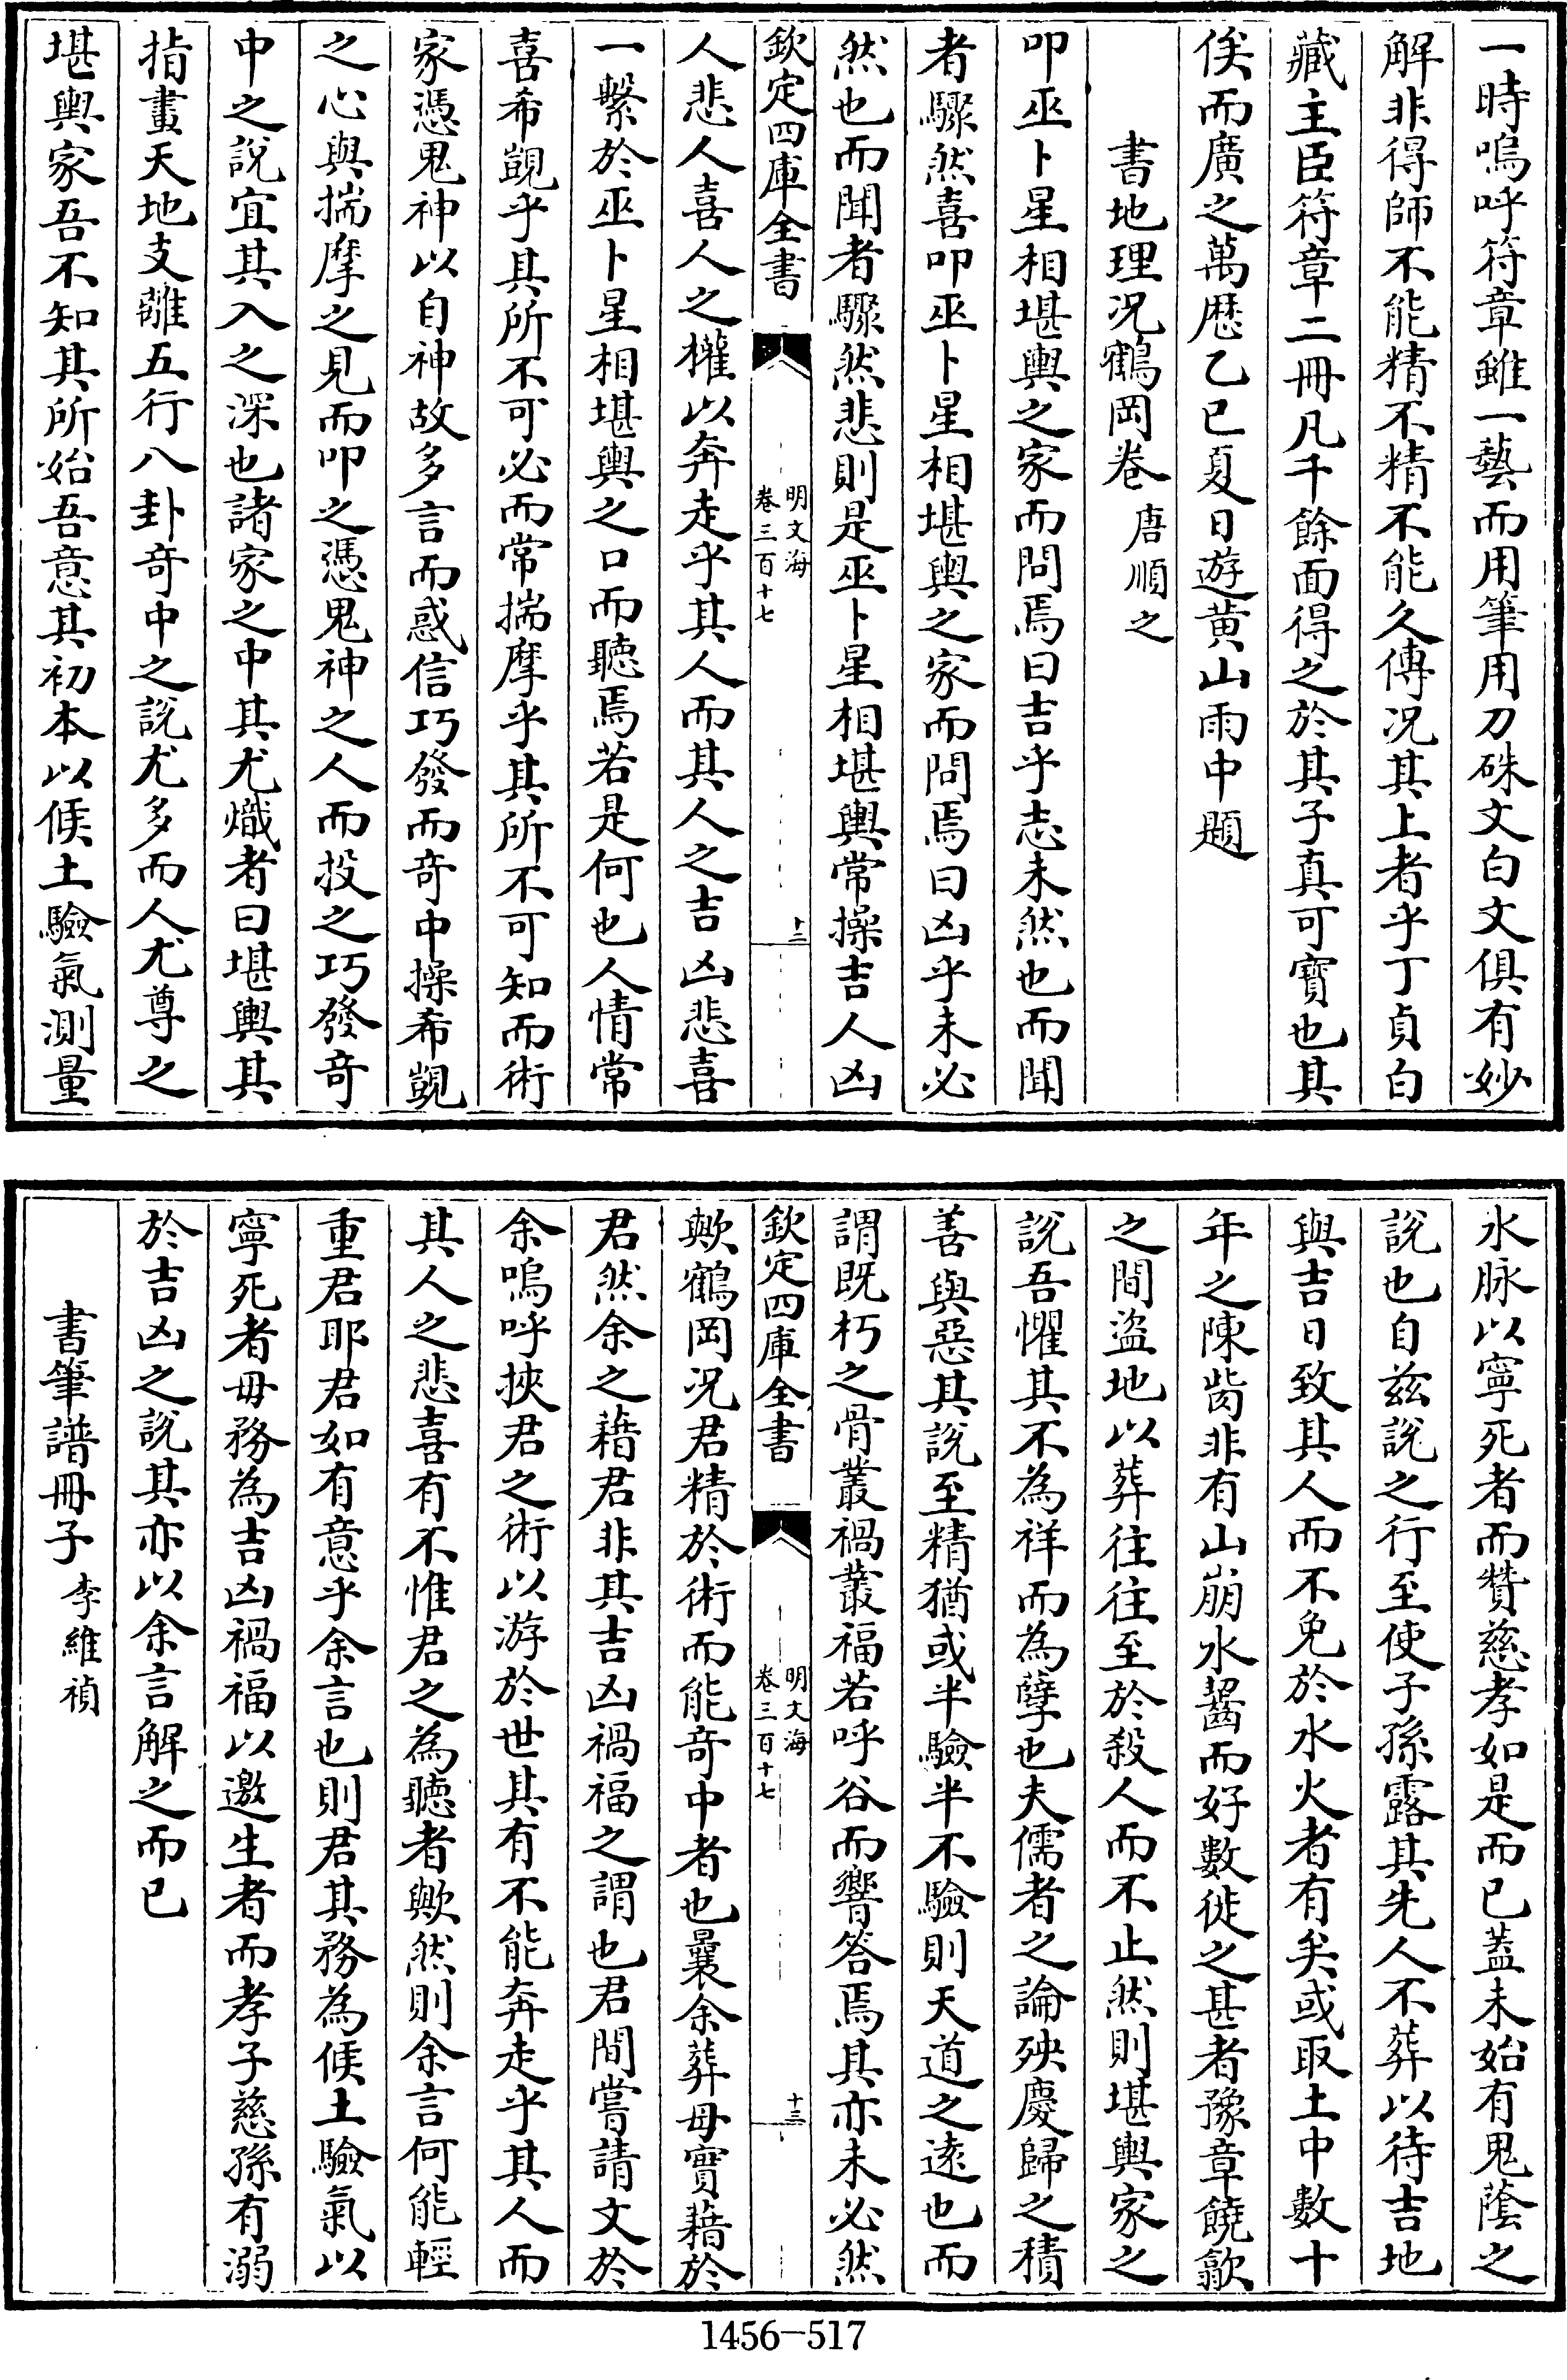 一時嗚呼符章雖一藝而用筆用刀硃文白文俱有妙
解非得師不能精不精不能久傳况其上者乎丁貞白
藏主臣符章二冊凡千餘面得之於其子真可寳也其
俟而廣之萬厯乙巳夏日遊黄山雨中題
書地理况鶴岡卷 唐順之
叩巫卜星相堪輿之家而問焉曰吉乎志未然也而聞
者驟然喜叩巫卜星相堪輿之家而問焉曰凶乎未必
然也而聞者驟然悲則是巫卜星相堪輿常操吉人凶
欽定四庫全書
明文海
卷三百十七
十三
人悲人喜人之權以奔走乎其人而其人之吉凶悲喜
一繫於巫卜星相堪輿之口而聽焉若是何也人情常
喜希覬乎其所不可必而常揣摩乎其所不可知而術
家憑鬼神以自神故多言而惑信巧發而竒中操希覬
之心與揣摩之見而叩之憑鬼神之人而投之巧發竒
中之說宜其入之深也諸家之中其尤熾者曰堪輿其
指畫天地支離五行八卦竒中之說尤多而人尤尊之
堪輿家吾不知其所始吾意其初本以候土驗氣測量
水脉以寧死者而贊慈孝如是而已蓋未始有鬼蔭之
說也自兹說之行至使子孫露其先人不葬以待吉地
與吉日致其人而不免於水火者有矣或取土中數十
年之陳胔非有山崩水齧而好數徙之甚者豫章饒歙
之間盜地以葬往往至於殺人而不止然則堪輿家之
說吾懼其不為祥而為孽也夫儒者之論殃慶歸之積
善與惡其說至精猶或半驗半不驗則天道之逺也而
謂既朽之骨叢禍叢福若呼谷而響答焉其亦未必然
欽定四庫全書
明文海
卷三百十七
十三
歟鶴岡况君精於術而能竒中者也曩余葬母實藉於
君然余之藉君非其吉凶禍福之謂也君間嘗請文於
余嗚呼挾君之術以游於世其有不能奔走乎其人而
其人之悲喜有不惟君之為聽者歟然則余言何能輕
重君耶君如有意乎余言也則君其務為候土驗氣以
寧死者毋務為吉凶禍福以邀生者而孝子慈孫有溺
於吉凶之說其亦以余言解之而已
書筆譜冊子 李維禎
1456-517